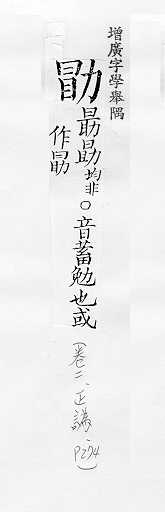 增廣字學舉隅
勖
朂均非○音蓄勉也或
作勗
(卷二、正譌、P274)